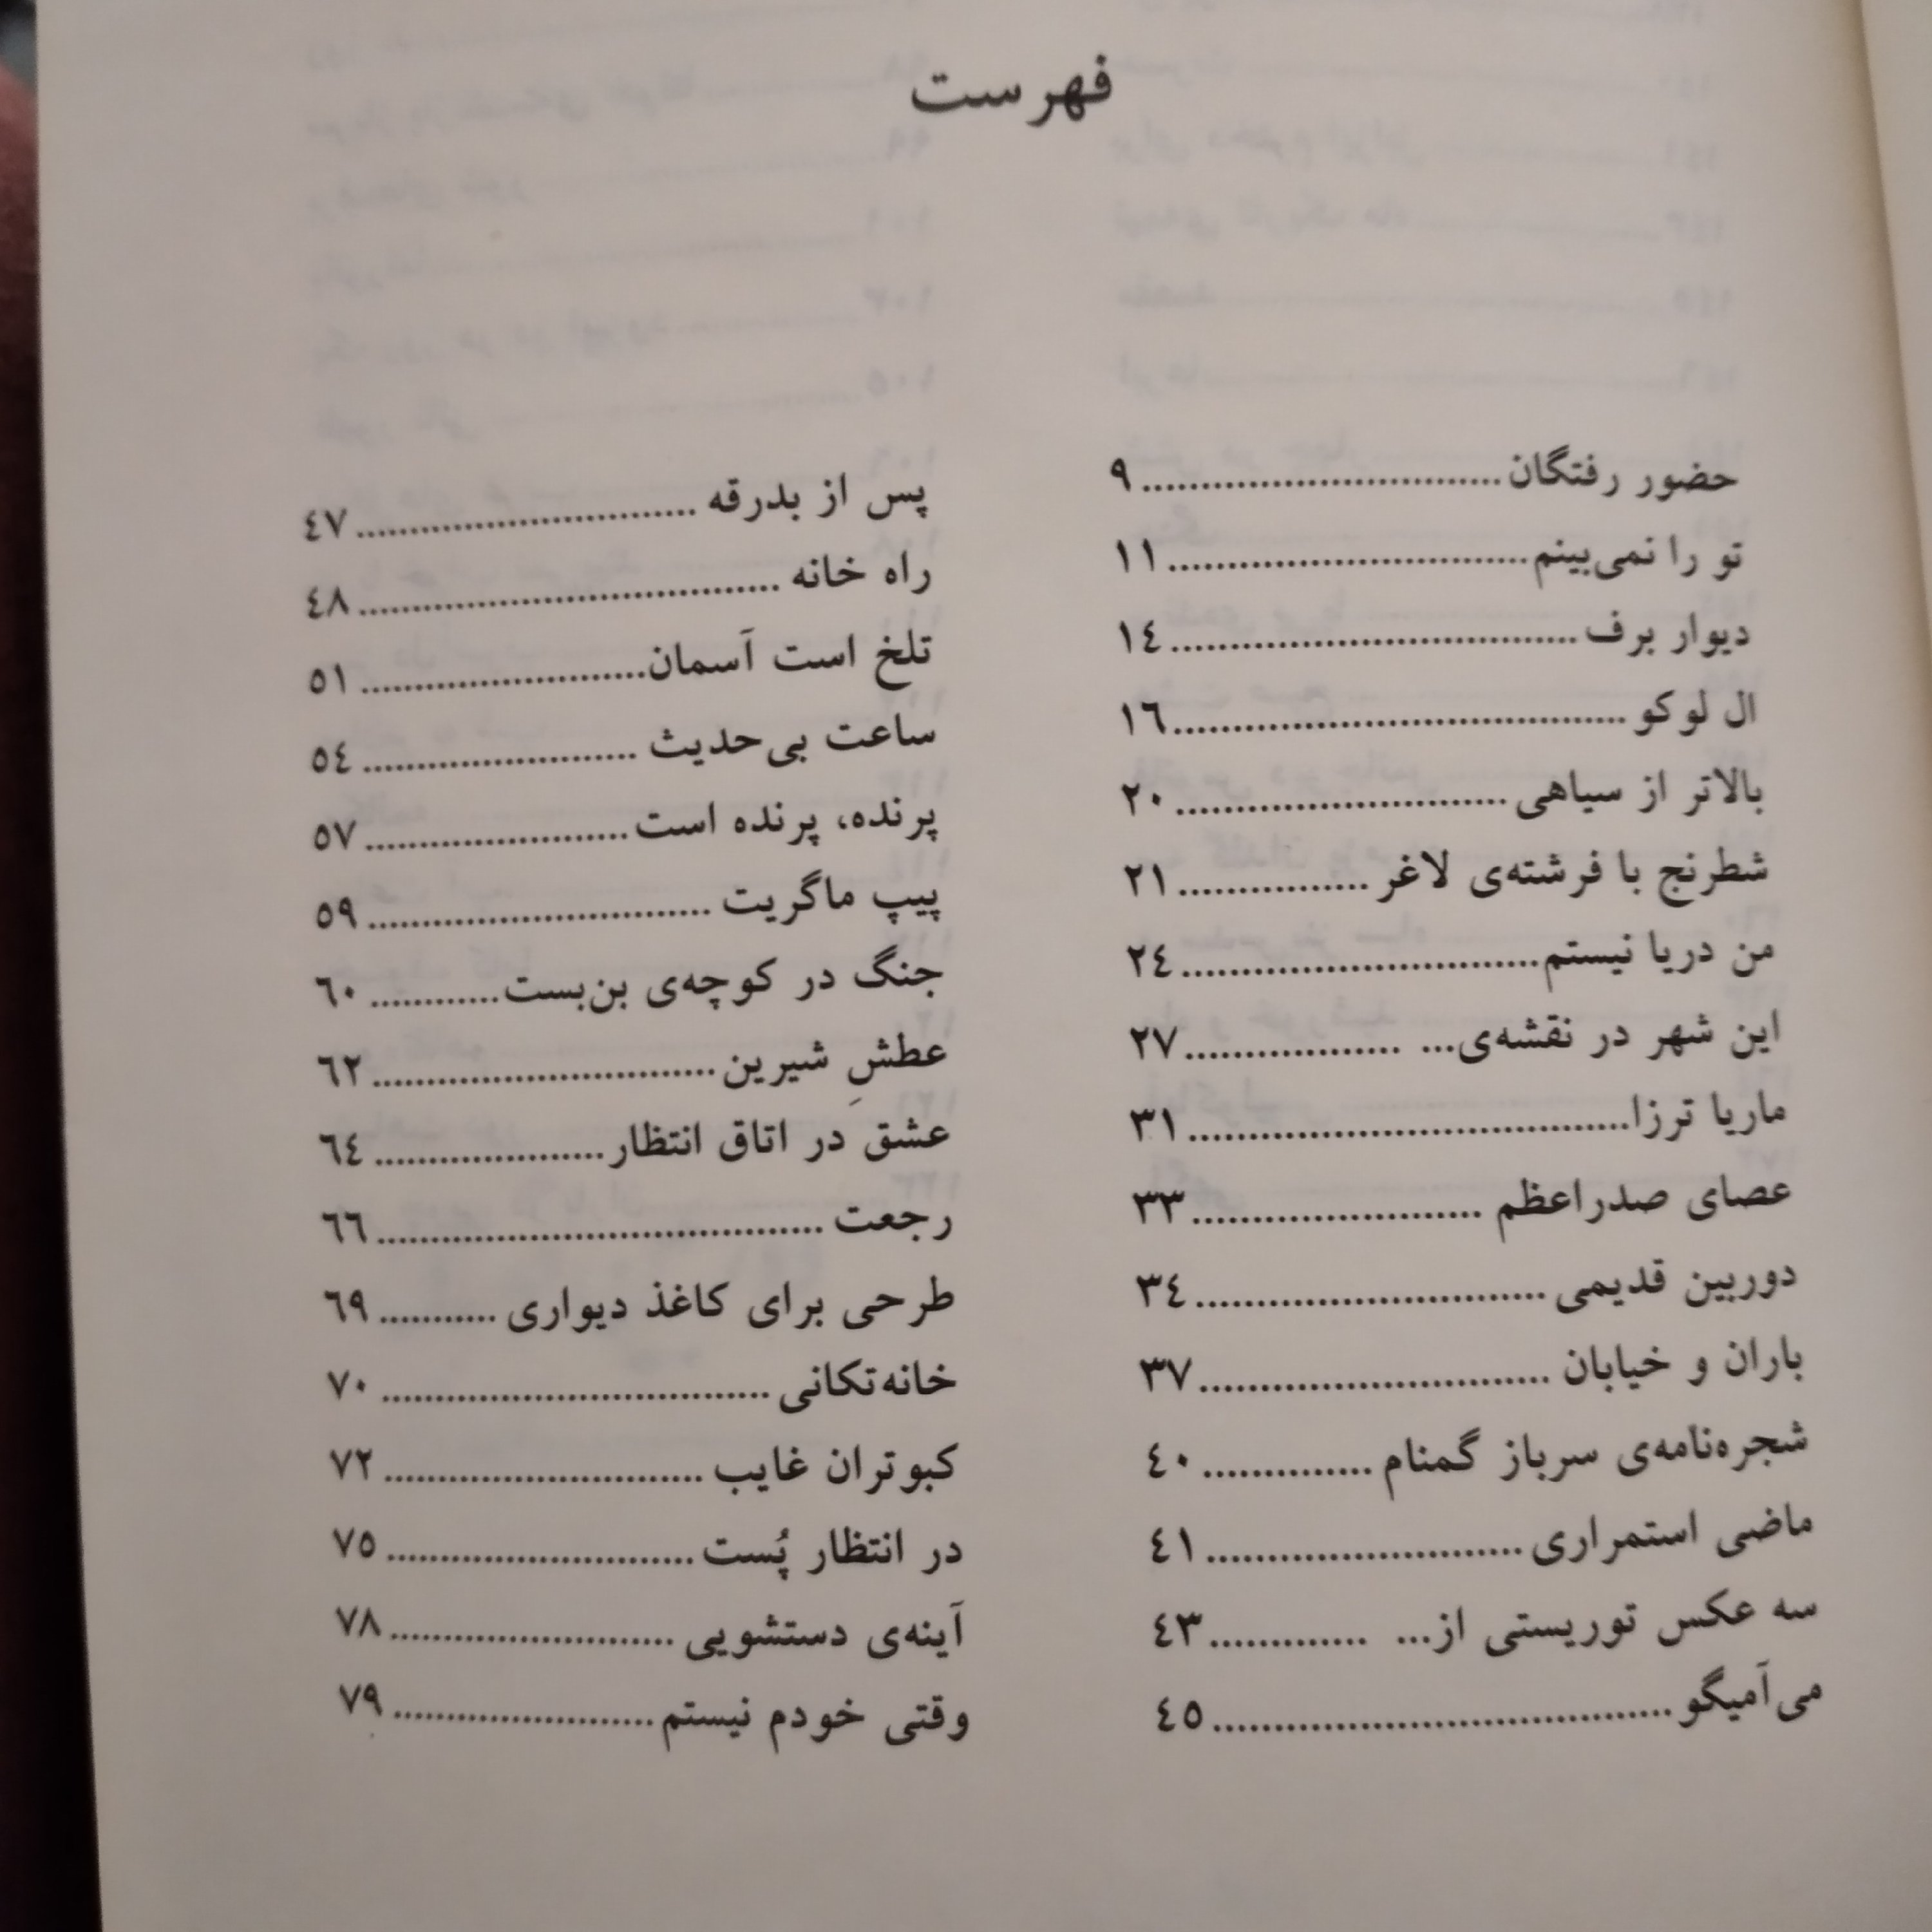 فهرست
حضور رفتگان..............................٩
تو را نمی‌بینم..............................١١
دیوار برف..................................١٤
ال لوکو......................................١٦
بالاتر از سیاهی............................٢٠
شطرنج با فرشته‌ی لاغر................٢١
من دریا نیستم..............................٢٤
این شهر در نقشه‌ی... ..................٢٧
ماریا ترزا.....................................٣١
عصای صدراعظم ........................٣٣
دوربین قدیمی.............................٣٤
باران و خیابان .............................٣٧
شجره‌نامه‌ی سرباز گمنام ..............٤٠
ماضی استمراری..........................٤١
سه عکس توریستی از... .............٤٣
می‌آمیگو......................................٤٥
پس از بدرقه ..............................٤٧
راه خانه .....................................٤٨
تلخ است آسمان..........................٥١
ساعت بی‌حدیث ........................٥٤
پرنده، پرنده است........................٥٧
پیپ ماگریت ..............................٥٩
جنگ در کوچه‌ی بن‌بست............٦٠
عطشِ شیرین..............................٦٢
عشق در اتاق انتظار....................٦٤
رجعت .......................................٦٦
طرحی برای کاغذ دیواری ...........٦٩
خانه‌تکانی..................................٧٠
کبوتران غایب ............................٧٢
در انتظار پُست...........................٧٥
آینه‌ی دستشویی ........................٧٨
وقتی خودم نیستم.......................٧٩